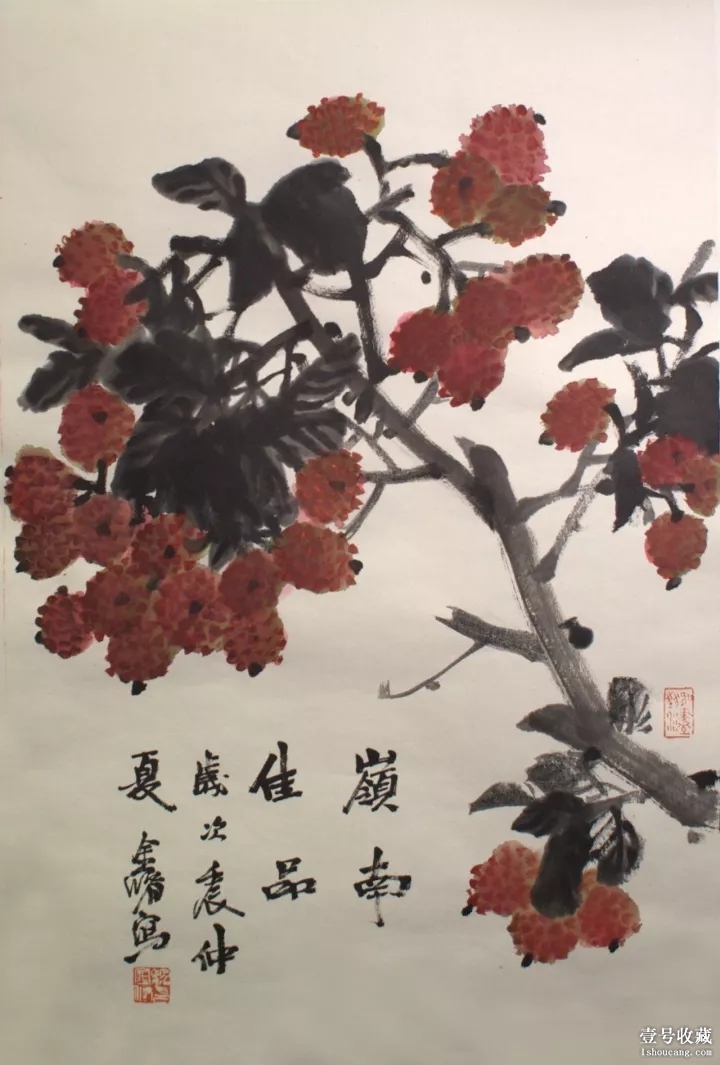 嶺南
佳品
歲次壬辰仲
夏 寫
壹号收藏
1shoucang.com